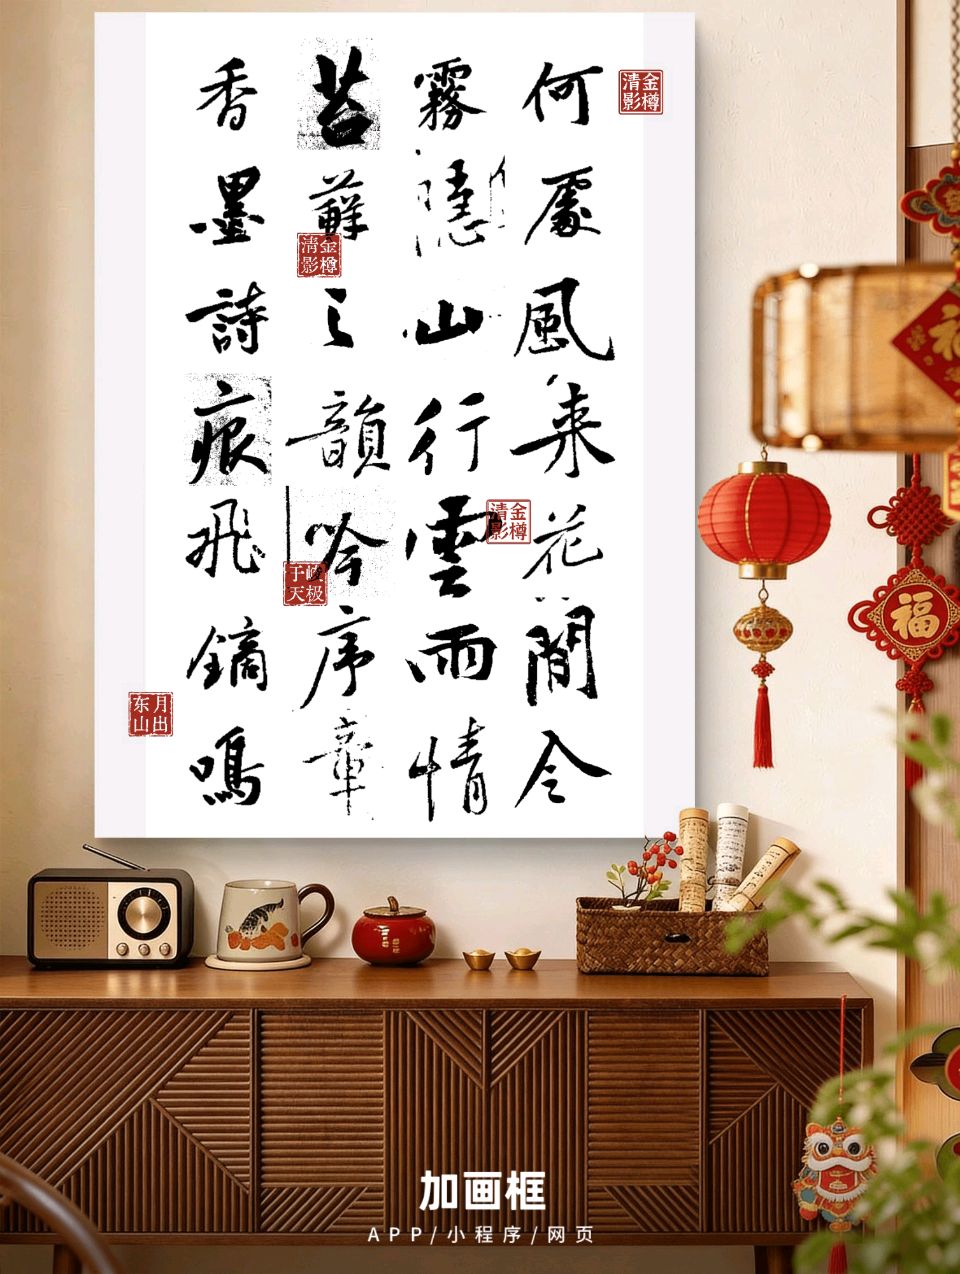 何處風来花間令
霧隱山行雲雨情
苔蘚之韻吟序章
香墨詩痕飛鏑鳴
金樽清影
金樽清影
金樽清影
于峻天极
月出东山
福
福
加画框
APP/小程序/网页